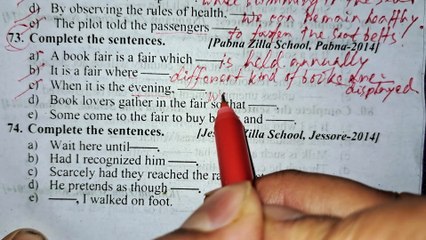 d) By observing the rules of health, we can remain healthy
e) The pilot told the passengers to fasten the seat belts.
73. Complete the sentences. [Pabna Zilla School, Pabna-2014]
a) A book fair is a fair which is held annually
b) It is a fair where different kind of books are displayed
c) When it is the evening,
d) Book lovers gather in the fair so that
e) Some come to the fair to buy books and
74. Complete the sentences. [Jessore Zilla School, Jessore-2014]
a) Wait here until
b) Had I recognized him
c) Scarcely had they reached the
d) He pretends as though
e) , I walked on foot.